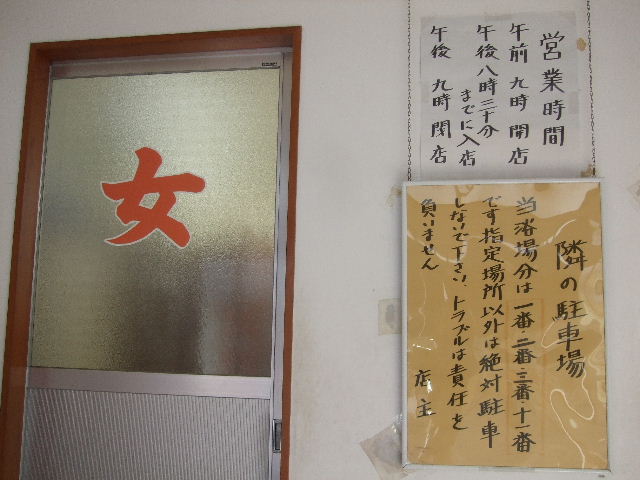 営業時間
午前 九時 開店
午後八時三十分
までに入店
午後 九時 閉店
女
隣の駐車場
当浴場分は一番・二番・三番・十一番
です指定場所以外は絶対駐車
しないで下さい、トラブルは責任を
負いません
店主